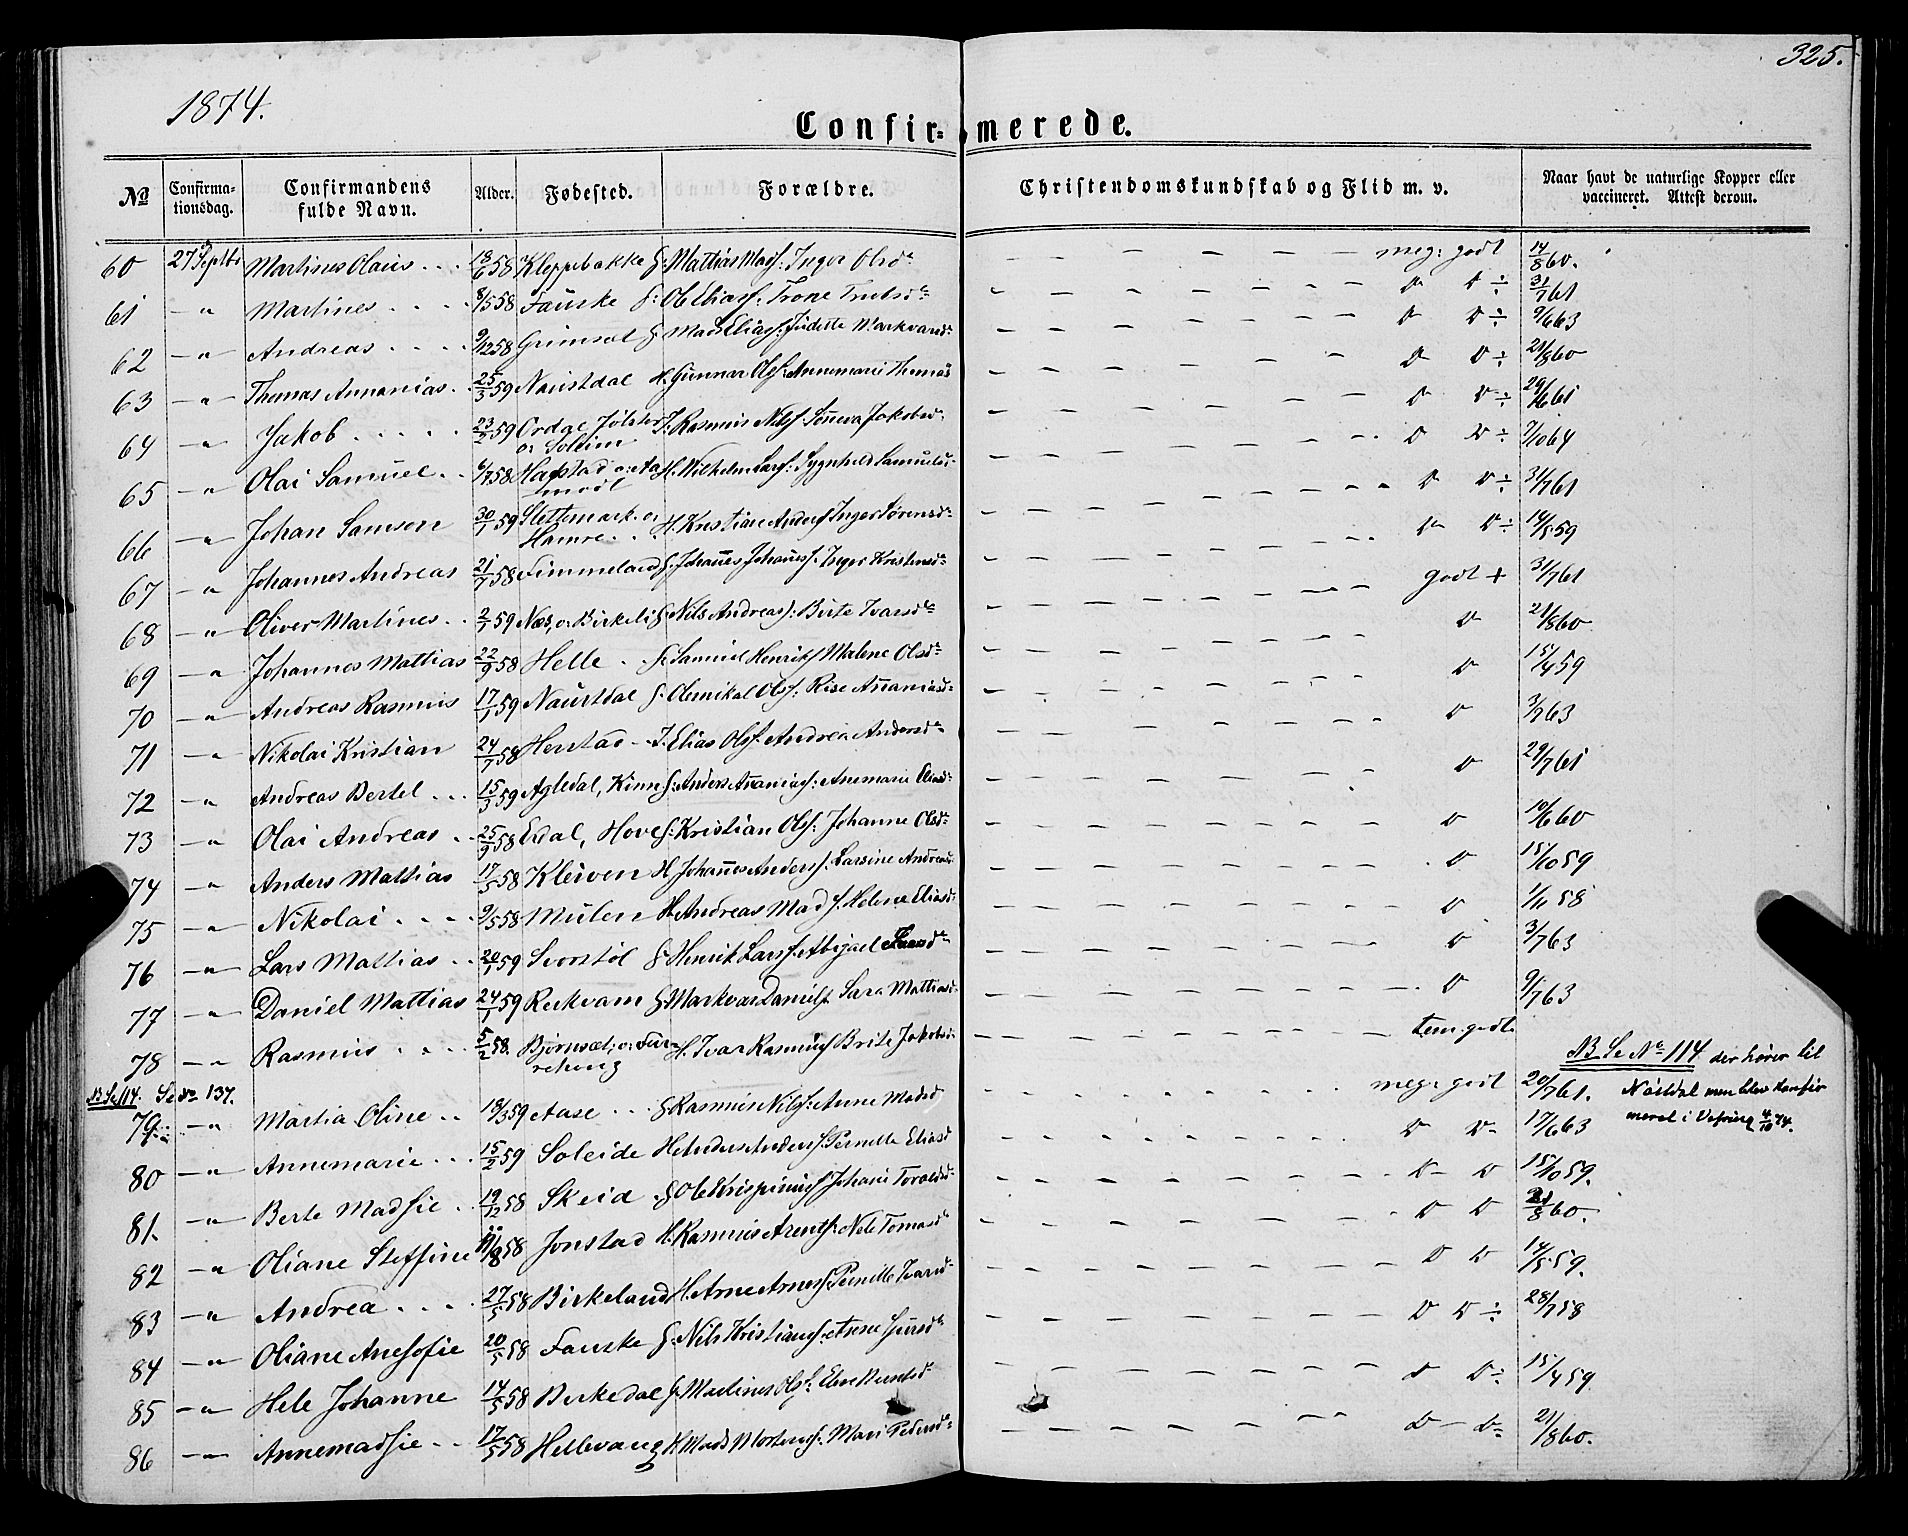 325.
1874.
Confir= merede.
No
Confirma-tionsdag.
Confirmandens fulde Navn.
Alder.
Fødested.
Forældre.
Christendomskundskab og Flid m. v.
Naar havt de naturlige Kopper eller vaccineret. Attest derom.
60 27 Septbr Martines Olaus . . . 18/6 58 Kleppebakke G. Mattias Mads: Inger Olsdr — — — — — meg: godt 14/8 60.
61 —"— Martines . . . . 8/5 58 Fauske G: Ole Elias: Trone — — — — — — D D ÷ 31/7 61
62 —"— Andreas . . . . 9/12 58 Grimset G Mads Elias: Judette Markvardr — — — — — — D D ÷ 9/6 63
63 —"— Thomas Annanias . . 25/3 59 Naustdal H. Gunnar Ols: Annemarie Thomas — — — — — — D D ÷ 21/8 60
64 —"— Jakob . . . . . 23/2 59 Ordal Jølster o: Soleim I. Rasmus Nils: Jakobsdr — — — — — — D D ÷ 29/6 61
65 —"— Olai Samuel . . 6/7 58 Hafstad H. Wilhelm Lars: Sygnhild Samuelsdr — — — — — — D D ÷ 7/10 64
66 —"— Johan Samson 30/1 59 Slettemark o: Hamre . . H. Kristian Anders Inger Sørensdr — — — — — — D D ÷ 31/7 61
67 —"— Johannes Andreas 21/7 58 Fimmeland G. Johañes Johañes: Inger Kristensdr — — — — — — D D ÷ 14/5 59
68 —"— Oliver Martines . . 2/1 59 Næs, o: Birkeli G Nils Andreas: Birte Ivarsdr — — — — — — godt + 31/7 61
69 —"— Johannes Mattias 22/9 58 Helle . G. Samuel Henriks Malene Olsdr — — — — — — D 21/8 60
70 —"— Andreas Rasmus 17/1 59 Naustdal G. Olemikal Ols: Rise Añaniasdr — — — — — — D 15/4 59
71 —"— Nikolai Kristian 24/7 58 Henstad I. Elias Ols: Andrea Andersdr — — — — — — D 3/7 63
72 —"— Andreas Bertel . . . 15/3 59 Agledal, Kinn G: Anders Ananias: Anemarie Eliasdr — — — — — — D 29/7 61
73 —"— Olai Andreas . . 25/9 58 Erdal, Hove G. Kristian Ols: Johanne Olsdr — — — — — — D 10/6 60
74 —"— Anders Mattias 17/5 58 Kleiven H Johañes Anders: Larsine Andreasdr — — — — — — D 15/10 59
75 —"— Nikolai . . . . 9/5 58 Mulen H. Andreas Mads: Helene Eliasdr — — — — — — D 1/11 58
76 —"— Lars Mattias . . 20/1 59 G Henrik Lars: Abigael — — — — — — D 3/7 63
77 —"— Daniel Mattias 24/1 59 Reckvam G Markvar Daniels Sara Mattiasdr — — — — — — D 9/7 63
78 —"— Rasmus . . . . 5/2 58. Bjørnset, o: H. Ivar Rasmus Brite Jakobsdr — — — — — — tem. godt
NB Se No 114 der hører til
Nøstdal men blev konfir
meret i Vefring 4/10 74.
NB Se 114. Se No 137.
79 —"— Martia Oline . . 18/3 59 Aase . . . G Rasmus Nils: Anne Madsd — — — — — — meg: godt 20/7 61.
80 —"— Annemarie . . . 15/2 59 Soleide H Anders Anders: Pernille Eliasd — — — — — — D D 17/6 63
81. —"— Berte Madsie . . 19/12 58 Skeid G Ole Krispinus Johane Toraldsd — — — — — — D D 15/10 59.
82 —"— Oliane Steffine 58 Jonstad H. Rasmus Arents: Nele Tomasd — — — — — — D D 21/8 60.
83 —"— Andrea . . . . 27/5 58 Birkeland H. Arne Arnes: Pernille Ivarsd — — — — — — D D 14/5 59.
84 —"— Oliane Anesofie 20/5 58 Fauske G. Nils Kristians: Anne Sjursdr — — — — — — D D ÷ 28/7 58
85 —"— Hele Johanne 14/5 58 Birkedal G. Martines Ols: — — — — — — D D ÷ 15/4 59.
86 —"— Annemadsie . . 17/5 58 Hellevang H Mads Mortens: Mari Pedersdr — — — — — — D D 21/8 60.